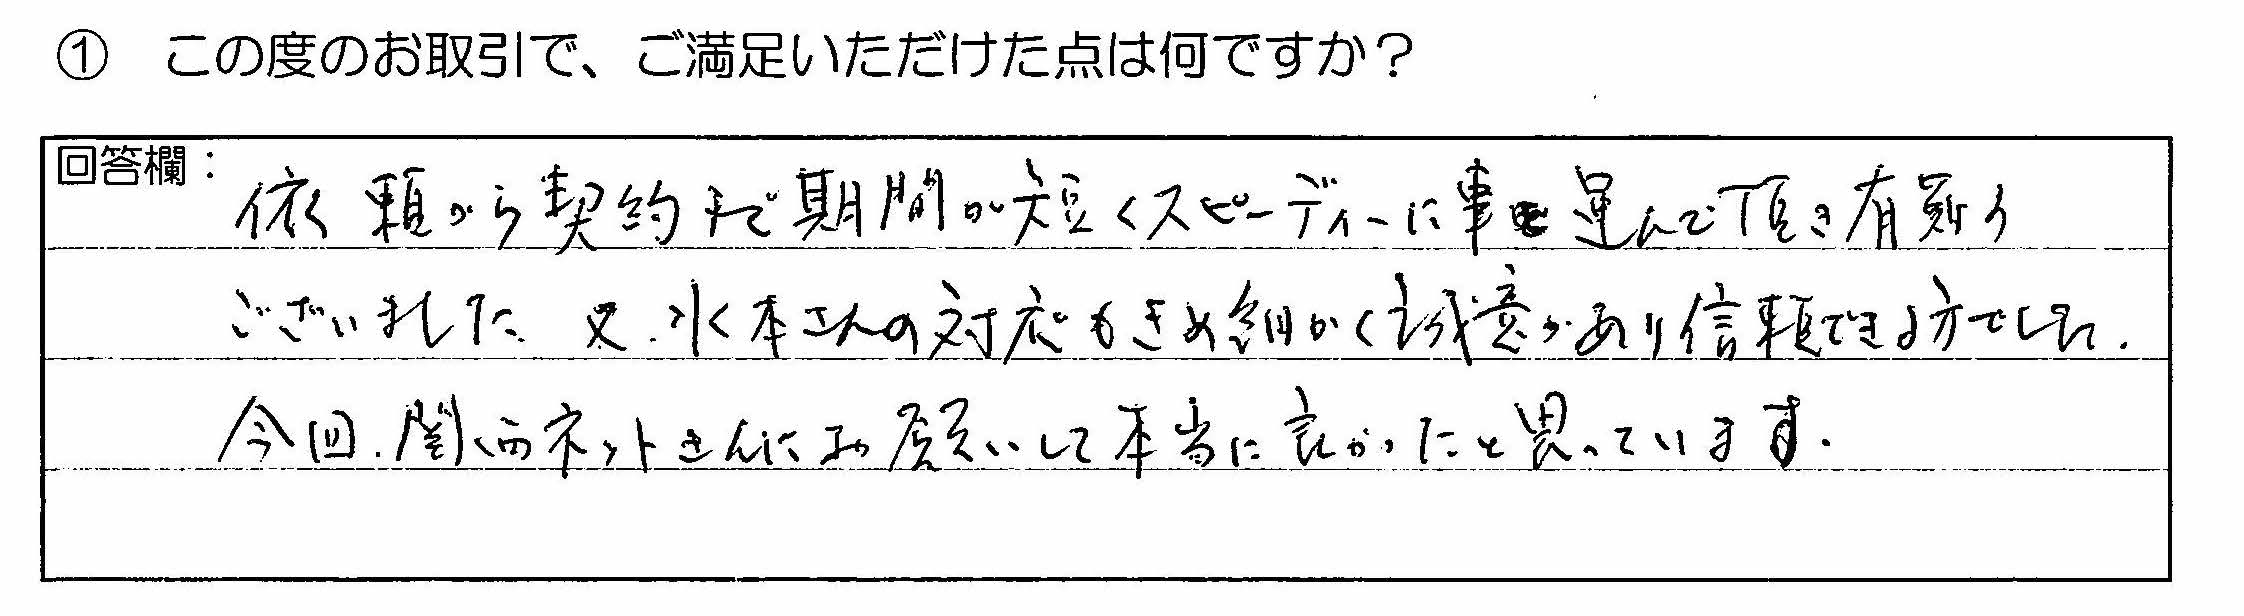 ① この度のお取引で、ご満足いただけた点は何ですか？
回答欄：
依頼から契約まで期間が短くスピーディーに事を運んで頂き有難う
ございました. 又. 水本さんの対応もきめ細かく誠意があり信頼できる方でした.
今回. 関西ネットさんにお願いして本当に良かったと思っています.